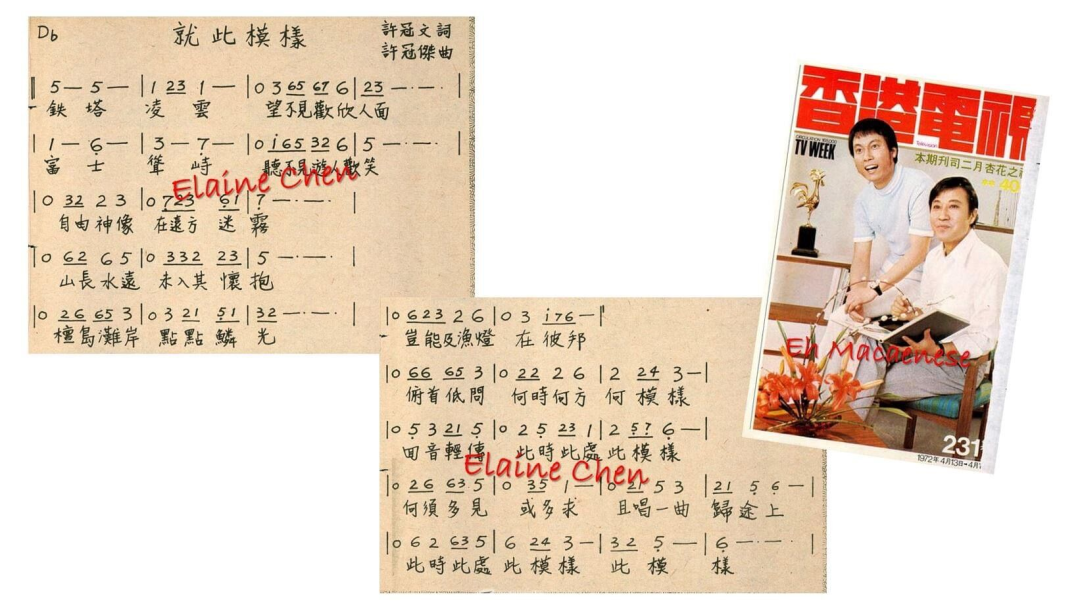 Db
就此模樣
許冠文詞
許冠傑曲
‖ 5 — 5 — | 1 23 1 — | 0 3 65 67 6 | 23 — · — · |
鉄塔 凌雲 望不見歡欣人面
1 — 6 — | 3 — 7 — | 0 i65 32 6 | 5 — · — · |
富士 聳峙 聽不見遊人歡笑
| 0 32 2 3 | 0 723 61 | 7 — · — · |
自由神像 在遠方 迷霧
| 0 62 6 5 | 0 332 23 | 5 — · — · |
山長水遠 未入其懷抱
| 0 26 65 3 | 0 3 21 51 | 32 — · — · |
檀島灘岸 點點鱗光
| 0 623 2 6 | 0 3 i76 — ‖
豈能及漁燈 在彼邦
| 0 66 65 3 | 0 22 2 6 | 2 24 3 — |
俯首低問 何時何方 何模樣
| 0 5 3 21 5 | 0 2 5 23 1 | 2 57 6 — |
回音輕傳 此時此處 此模樣
| 0 26 63 5 | 0 35 1 — | 0 21 5 3 | 21 5 6 — |
何須多見 或多求 且唱一曲 歸途上
| 0 6 2 63 5 | 6 24 3 — | 32 5 — | 6 — · — · |
此時此處 此模樣 此模 樣
Elaine Chen
Elaine Chen
香港電視
TV WEEK
本期刊司二月杏花之
40
Eh Macaenese
231
1972年4月13日-4月